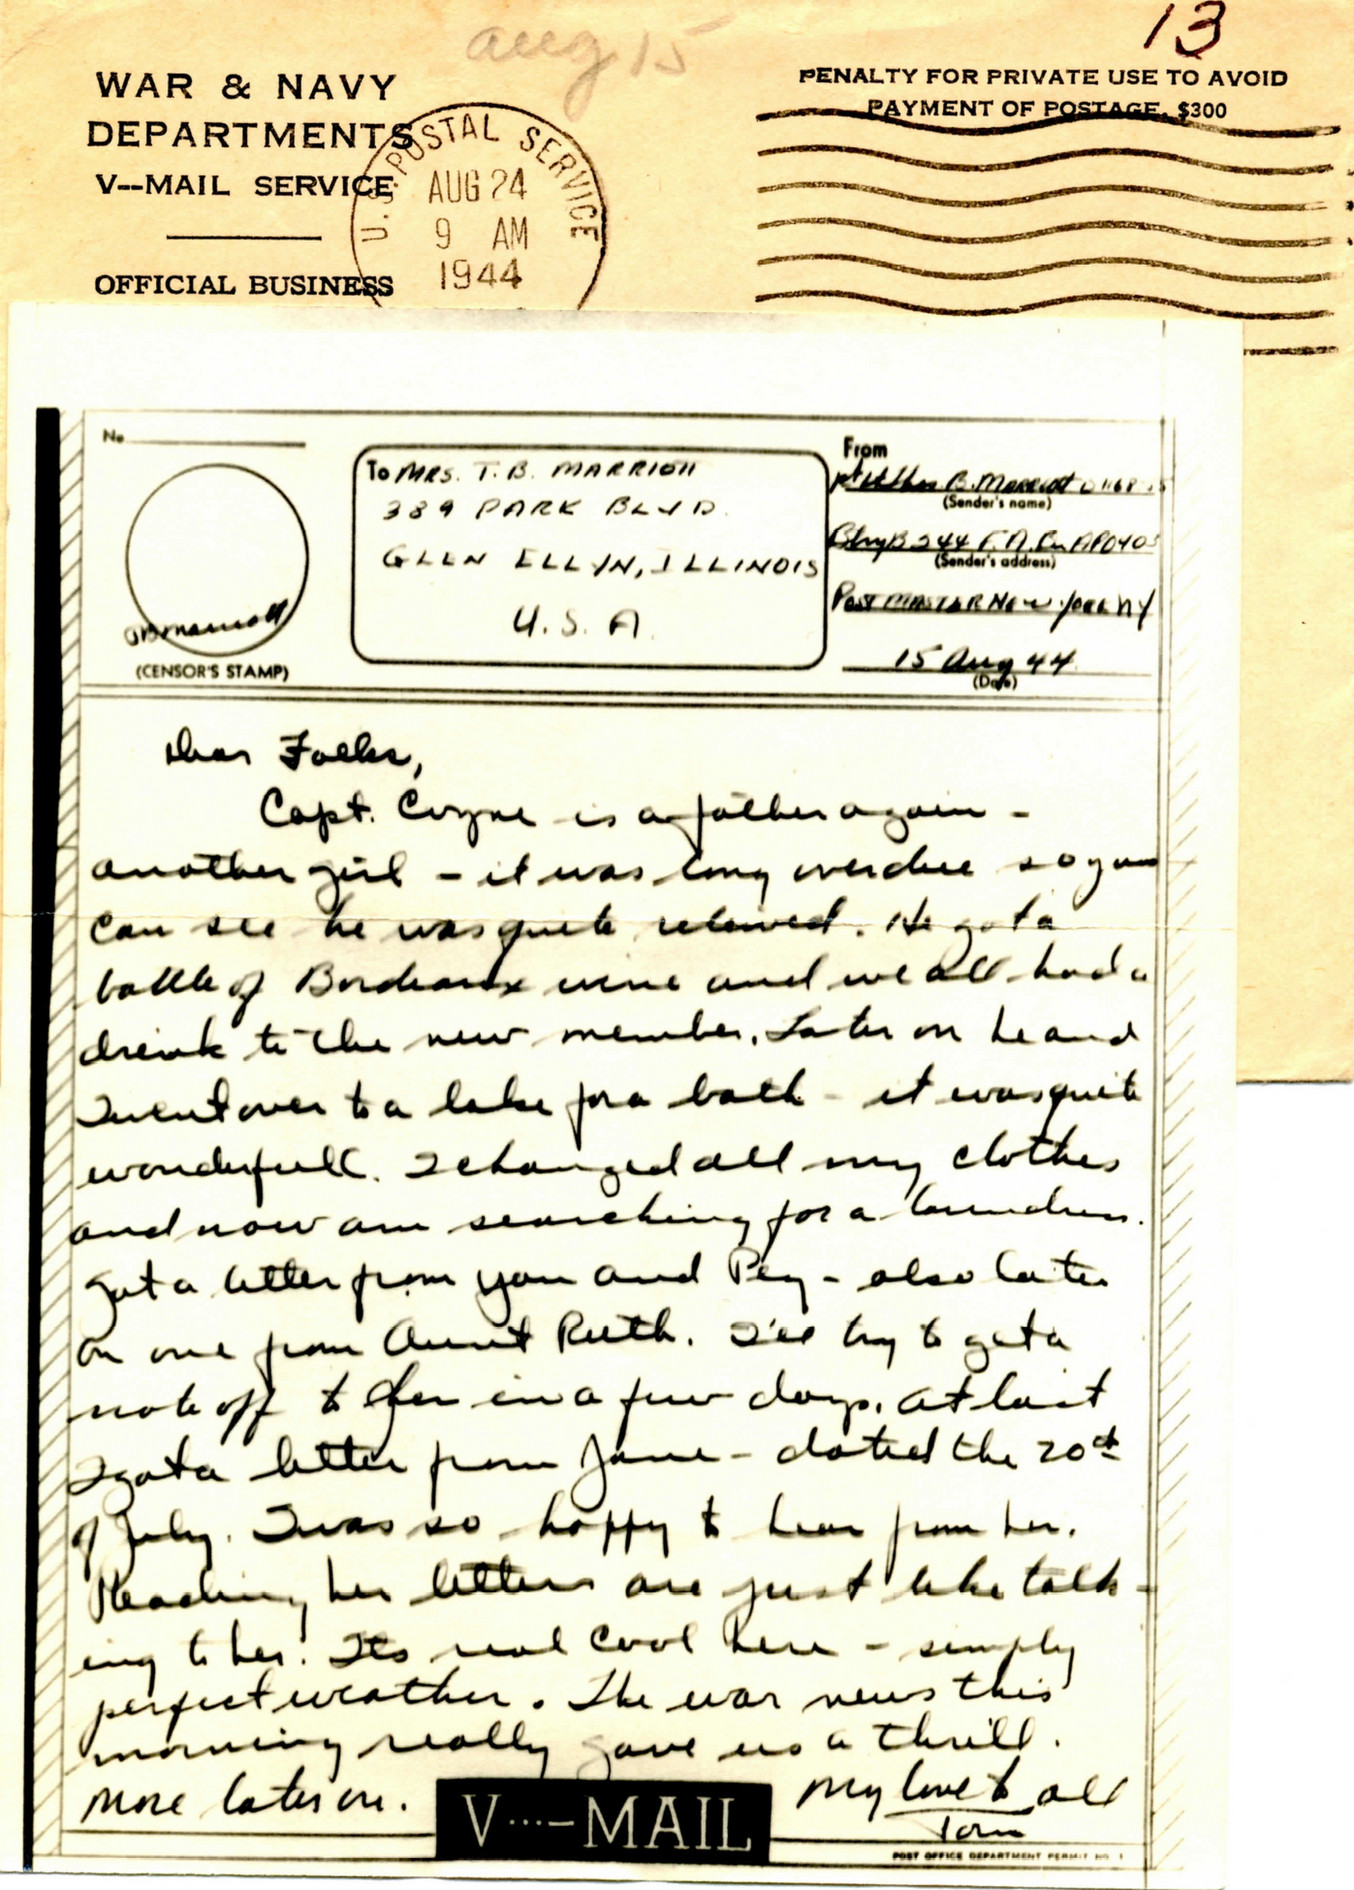 13
aug 15
WAR & NAVY
DEPARTMENTS
V--MAIL SERVICE
OFFICIAL BUSINESS
U.S. POSTAL SERVICE
AUG 24
9 AM
1944
PENALTY FOR PRIVATE USE TO AVOID
PAYMENT OF POSTAGE, $300
No.
(CENSOR'S STAMP)
To MRS. T. B. MARRIOTT
389 PARK BLVD.
GLEN ELLYN, ILLINOIS
U. S. A.
From
B. Marriott
(Sender's name)
Btry B 244 F. A. Bn APO 403
(Sender's address)
Post MASTER New York NY
15 Aug 44
(Date)
Dear Folks,
Capt. Coyne is a father again -
another girl - it was long overdue so you
can see he was quite relieved. He got a
bottle of Bordeaux wine and we all had a
drink to the new member. Later on he and
I went over to a lake for a bath - it was quite
wonderfull. I changed all my clothes
and now am searching for a laundress.
Got a letter from you and Peg - also later
on one from Aunt Ruth. I'll try to get a
note off to her in a few days. At last
I got a letter from Jane - dated the 20th
of July. I was so happy to hear from her.
Reading her letters are just like talk-
ing to her. Its real cool here - simply
perfect weather. The war news this
morning really gave us a thrill.
More later on. My love to all
Tom
V···-MAIL
POST OFFICE DEPARTMENT PERMIT NO. 1